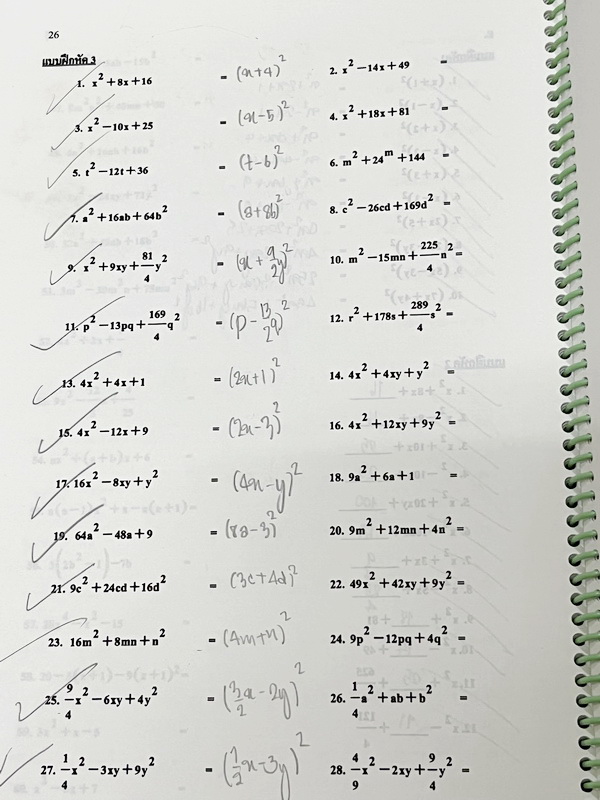 26
แบบฝึกหัด 3
1. x² + 8x + 16 = (x+4)² 2. x² − 14x + 49 =
3. x² − 10x + 25 = (x−5)² 4. x² + 18x + 81 =
5. t² − 12t + 36 = (t−6)² 6. m² + 24ᵐ + 144 =
7. a² + 16ab + 64b² = (a+8b)² 8. c² − 26cd + 169d² =
9. x² + 9xy + 81/4 y² = (x + 9/2 y)² 10. m² − 15mn + 225/4 n² =
11. p² − 13pq + 169/4 q² = (p − 13/2 q)² 12. r² + 178s + 289/4 s² =
13. 4x² + 4x + 1 = (2x+1)² 14. 4x² + 4xy + y² =
15. 4x² − 12x + 9 = (2x−3)² 16. 4x² + 12xy + 9y² =
17. 16x² − 8xy + y² = (4x−y)² 18. 9a² + 6a + 1 =
19. 64a² − 48a + 9 = (8a−3)² 20. 9m² + 12mn + 4n² =
21. 9c² + 24cd + 16d² = (3c+4d)² 22. 49x² + 42xy + 9y² =
23. 16m² + 8mn + n² = (4m+n)² 24. 9p² − 12pq + 4q² =
25. 9/4 x² − 6xy + 4y² = (3/2 x − 2y)² 26. 1/4 a² + ab + b² =
27. 1/4 x² − 3xy + 9y² = (1/2 x − 3y)² 28. 4/9 x² − 2xy + 9/4 y² =